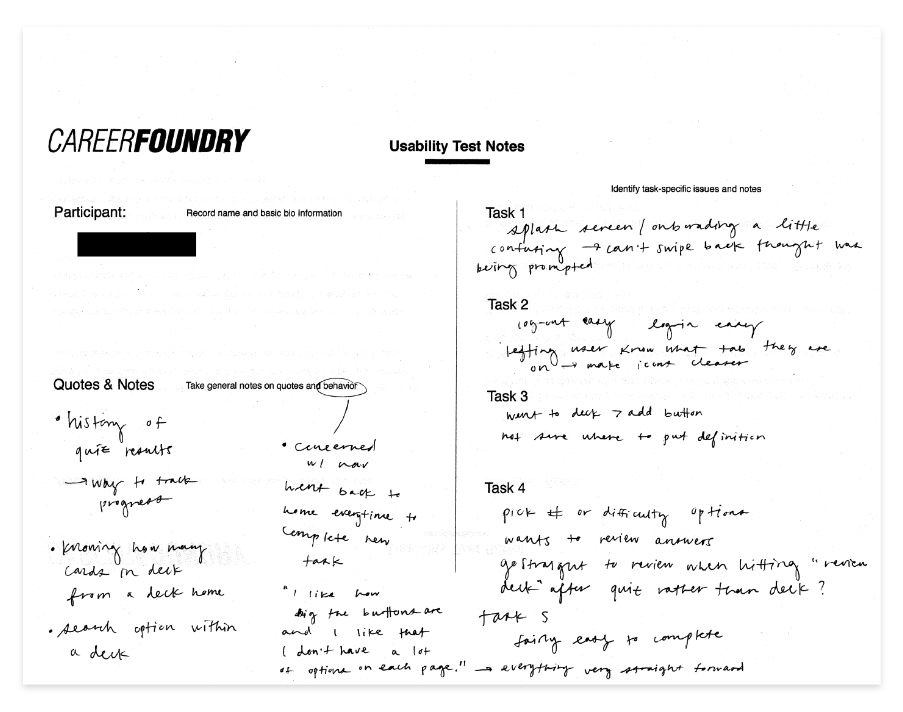 CAREERFOUNDRY
Usability Test Notes
Participant:
Record name and basic bio information
Quotes & Notes
Take general notes on quotes and behavior
• history of
quiz results
→ way to track
progress
• knowing how many
cards in deck
from a deck home
• search option within
a deck
• concerned
w/ nav
went back to
home everytime to
complete new
task
"I like how
big the buttons are
and I like that
I don't have a lot
of options on each page." → everything very straight forward
Identify task-specific issues and notes
Task 1
splash screen / onboarding a little
confusing → can't swipe back thought was
being prompted
Task 2
log-out easy login easy
letting user know what tab they are
on → make icons clearer
Task 3
went to deck > add button
not sure where to put definition
Task 4
pick # or difficulty options
wants to review answers
go straight to review when hitting "review
deck" after quiz rather than deck?
task 5
fairly easy to complete